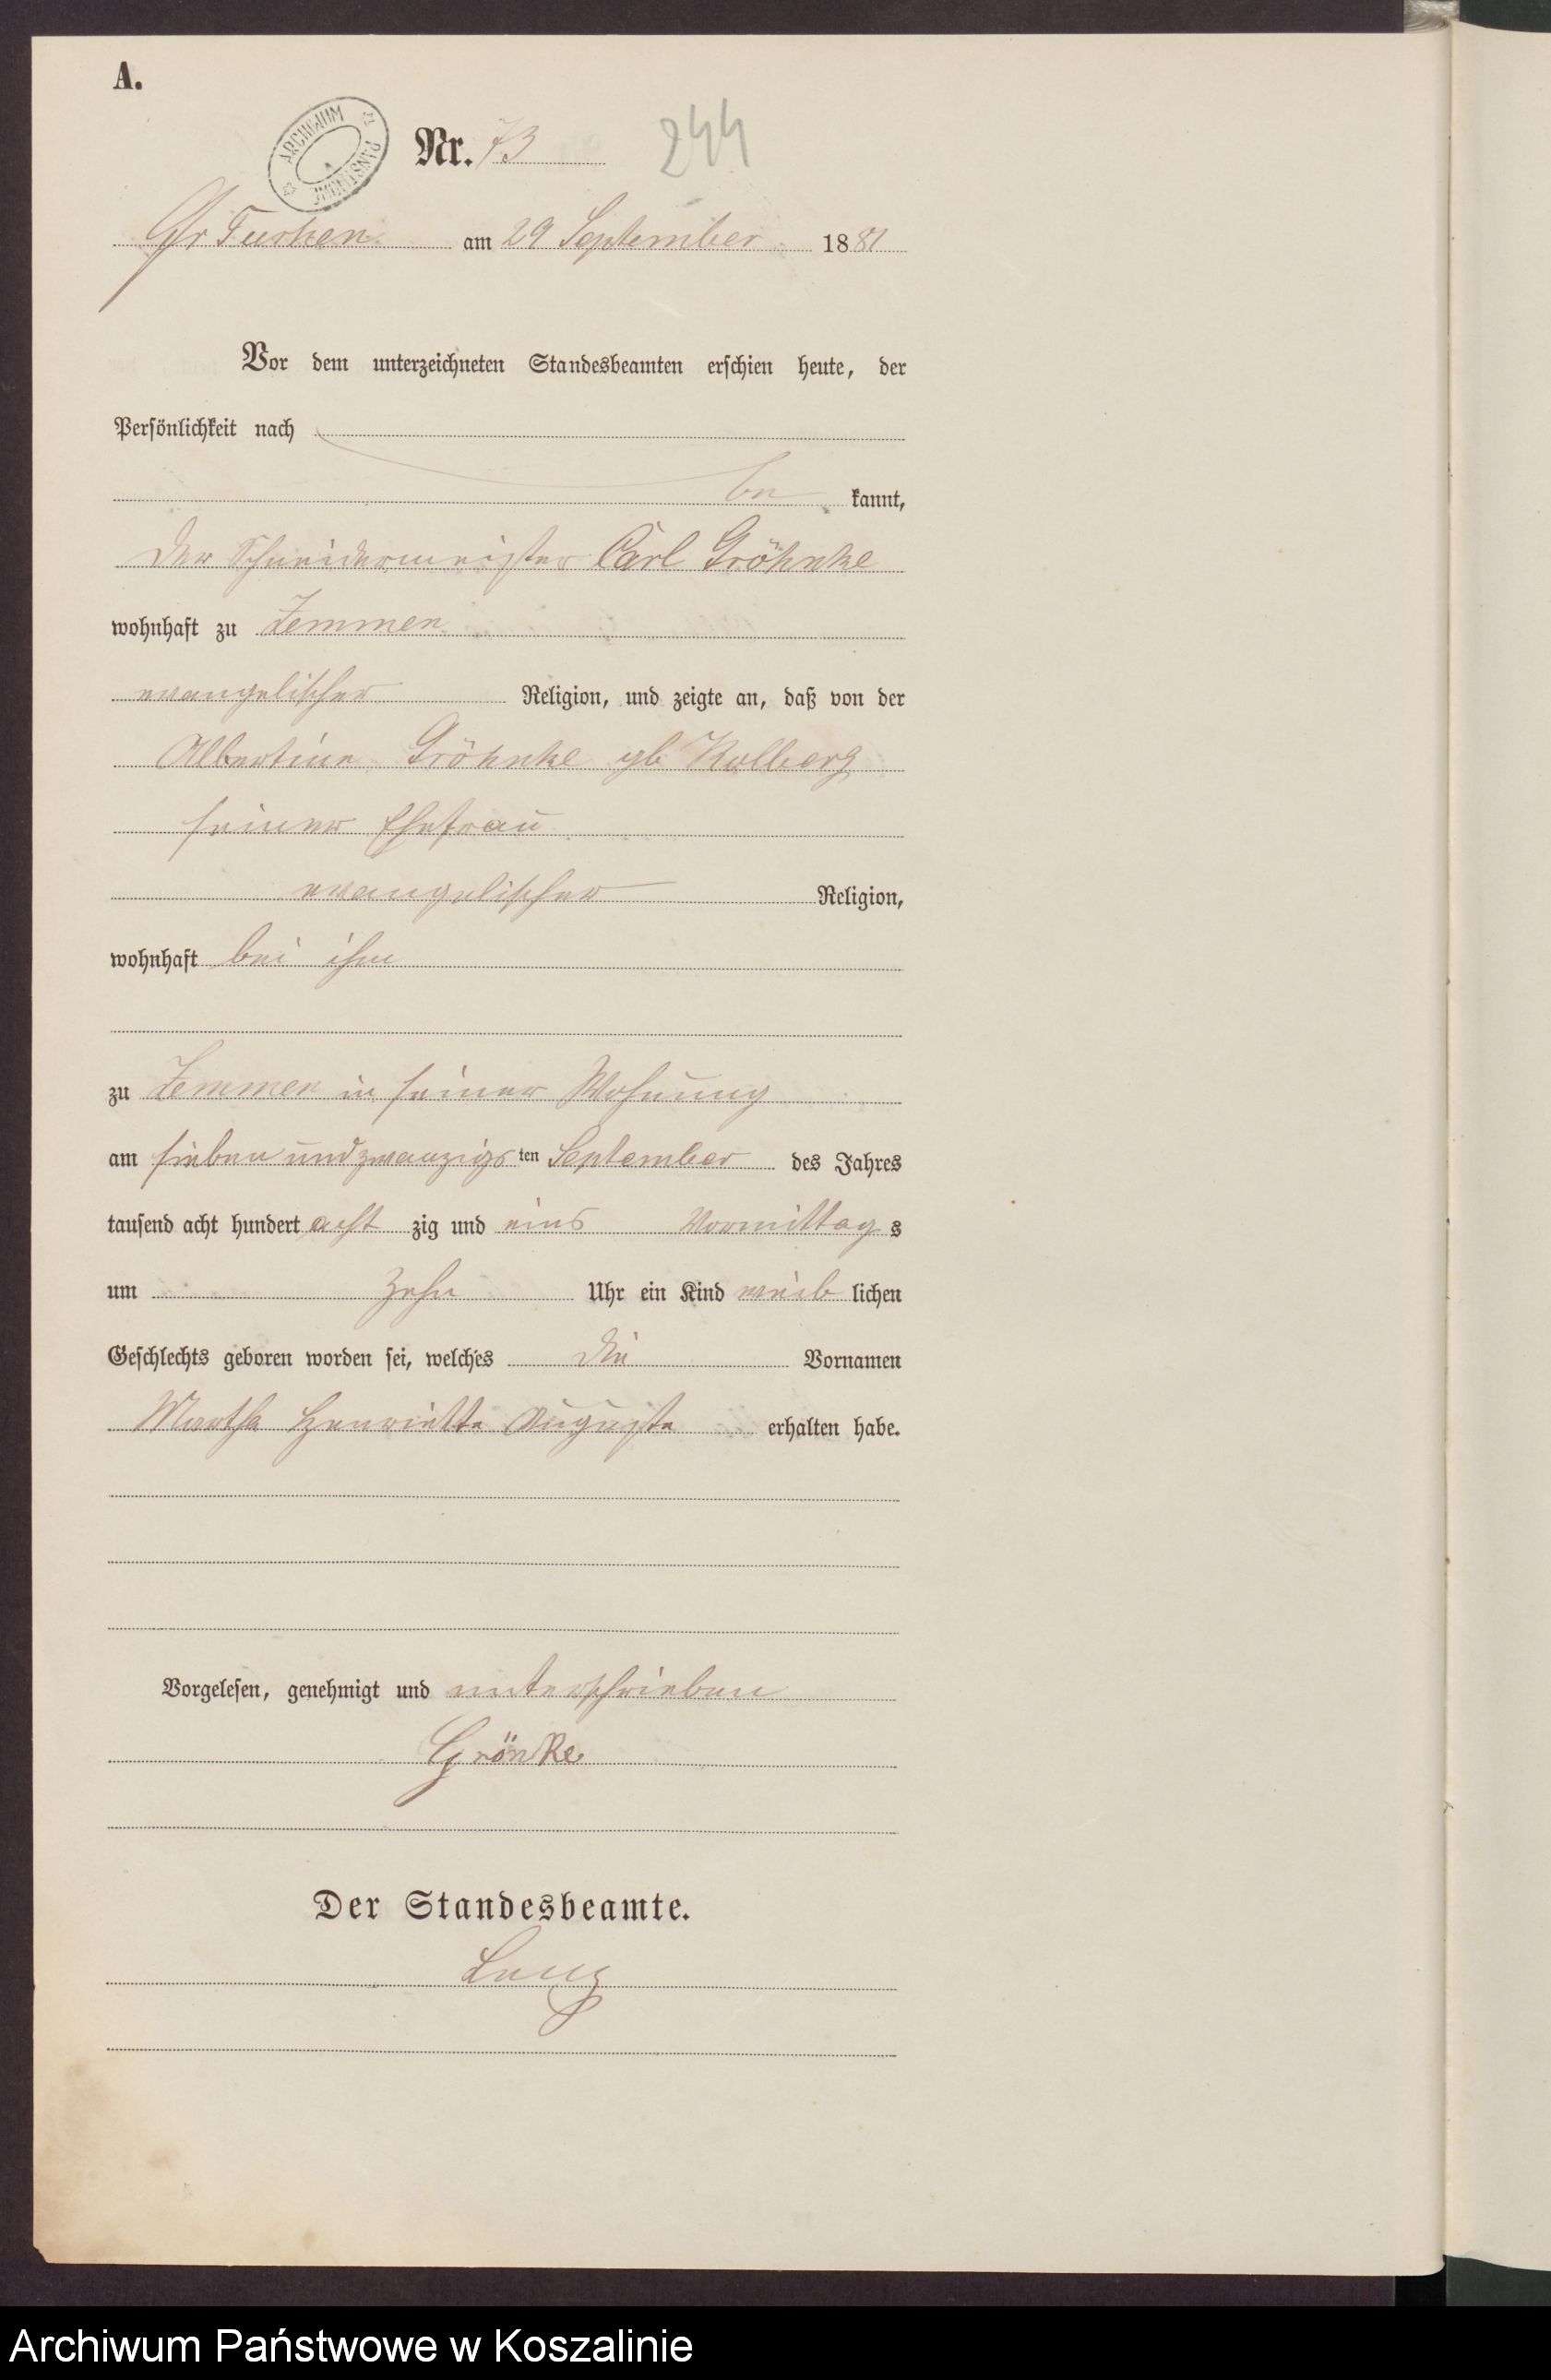 A.
ARCHIWUM PAŃSTWOWE
Nr. 73 244
Gr Tuchen am 29 September 1881
Vor dem unterzeichneten Standesbeamten erschien heute, der
Persönlichkeit nach
be kannt,
der Schneidermeister Carl Gröhnke
wohnhaft zu Zemmen
evangelischer Religion, und zeigte an, daß von der
Albertine Gröhnke gb Kolberg
seiner Ehefrau
evangelischer Religion,
wohnhaft bei ihm
zu Zemmen in seiner Wohnung
am sieben und zwanzigsten September des Jahres
tausend acht hundert acht zig und eins Vormittags
um zehn Uhr ein Kind weib lichen
Geschlechts geboren worden sei, welches die Vornamen
Martha Henriette Auguste erhalten habe.
Vorgelesen, genehmigt und unterschrieben
Grönke
Der Standesbeamte.
Archiwum Państwowe w Koszalinie